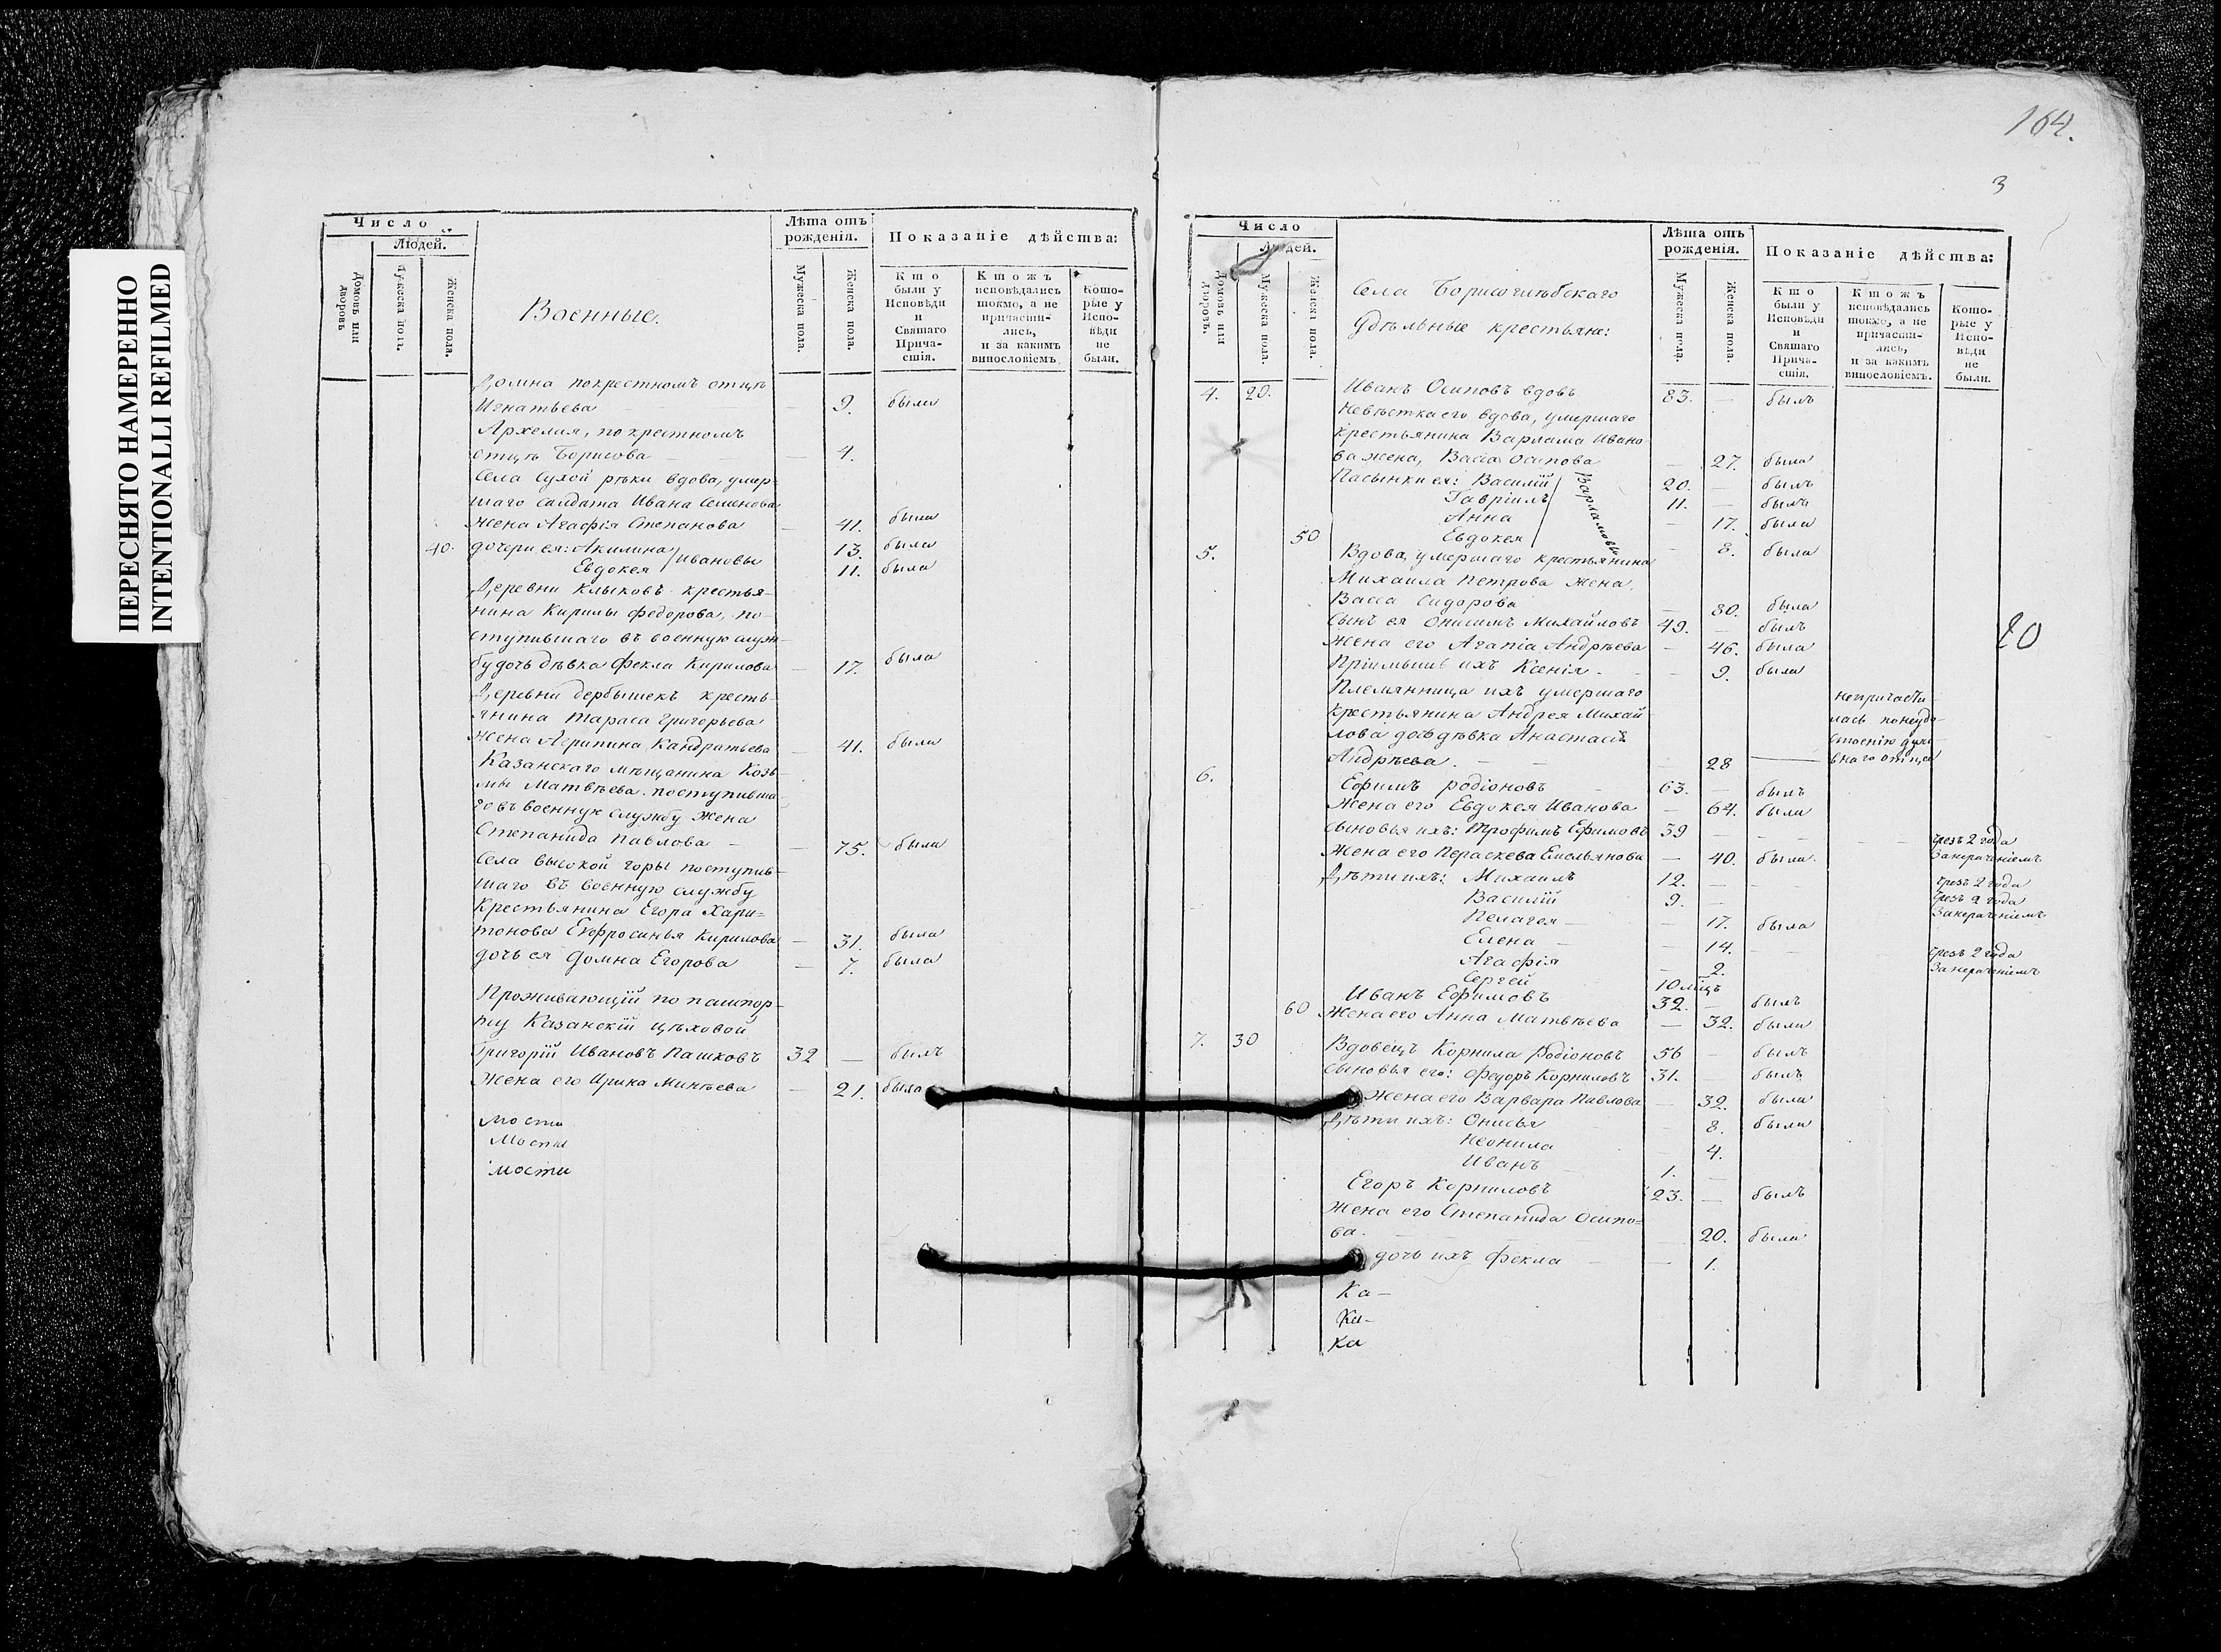 ПЕРЕСНЯТО НАМЕРЕННО
INTENTIONALLI REFILMED
Число
Людей.
Домовъ или дворовъ
Мужеска полъ.
Женска пола.
Военные.
Лѣта отъ рожденія.
Мужеска пола.
Женска пола.
Показаніе дѣйства:
Кто были у Исповѣди и Святаго Причастія.
Ктожъ исповѣдались токмо, а не причастились, и за какимъ винословіемъ.
Которые у Исповѣди не были.
Домна покрестномъ отцѣ
Игнатьева — 9. была
Архелая, по крестномъ
отцѣ Борисова — 4.
Села Сухой рѣки вдова, умер-
шаго солдата Ивана Семенова
жена Агафія Степанова — 41. была
40. дочери ея: Акилина 13. была
Евдокея / Ивановы 11. была
Деревни Клыковъ крестья-
нина Кирилы Федорова, по-
ступившаго въ военную служ-
бу дочь дѣвка Фекла Кирилова — 17. была
Деревни Дербышекъ кресть-
янина Тараса Григорьева
жена Агрипина Кандратьева — 41. была
Казанскаго мѣщанина Козь-
мы Матвѣева поступивша-
го въ военную службу жена
Степанида Павлова — 75. была
Села высокой горы поступив-
шаго въ военную службу
Крестьянина Егора Хари=
тонова Ефросинья Кирилова — 31. была
дочь ея Домна Егорова — 7. была
Проживающій по пашпор-
ту Казанскій цѣховой
Григорій Ивановъ Пашковъ 32 — былъ
Жена его Ирина Минѣева — 21. была
мости
мости
мости
164.
3
Число
Людей.
Домовъ или дворовъ.
Мужеска пола.
Женска пола.
Села Борисоглѣбскаго
Удѣльные крестьяне:
Лѣта отъ рожденія.
Мужеска пола.
Женска пола.
Показаніе дѣйства:
Кто были у Исповѣди и Святаго Причастія.
Ктожъ исповѣдались токмо, а не причастились, и за какимъ винословіемъ.
Которые у Исповѣди не были.
4. 20. Иванъ Осиповъ вдовъ 83. — былъ
Невѣстка его вдова, умершаго
крестьянина Варлама Ивано
ва жена, Васса Осипова — 27. была
Пасынки ея: Василій 20. — былъ
Гавріилъ 11. — былъ
Анна — 17. была
50 Евдокея / Варламовы — 8. была
5. Вдова, умершаго крестьянина
Михаила Петрова жена,
Васса Сидорова — 80. была
Сынъ ея Онисимъ Михайловъ 49. — былъ
жена его Агапіа Андрѣева — 46. была
Пріимышъ ихъ Ксенія — 9. была
Племянница ихъ умершаго
крестьянина Андрея Михай
лова дочь дѣвка Анастасія
Андрѣева. — 28 —
непричасти-
лась понеудо-
стоенію духо-
внаго отца
20
6. Ефимъ родіоновъ 63. — былъ
Жена его Евдокея Иванова — 64. была
Сыновья ихъ: Трофимъ Ефимовъ 39 — чрезъ 2 года
Жена его Пераскева Емельянова — 40. была.
Дѣти ихъ: Михаилъ 12. — чрезъ 2 года
Василій 9. — чрезъ 2 года
Пелагея — 17. была
Елена — 14. — чрезъ 2 года
Агафія — 2.
Сергей 10 мѣцъ
Иванъ Ефимовъ 32. — былъ
60 Жена его Анна Матвѣева — 32. была
7. 30 Вдовецъ Корнила Родіоновъ 56 — былъ
Сыновья его: Федоръ Корниловъ 31. — былъ
Жена его Варвара Павлова — 32. была
Дѣти ихъ: Онисья — 8. была
Неонила — 4.
Иванъ 1. —
Егоръ Корниловъ 23. — былъ
Жена его Степанида Осипо=
ва. 20. была
дочь ихъ Фекла — 1.
Ка—
Ка—
Ка